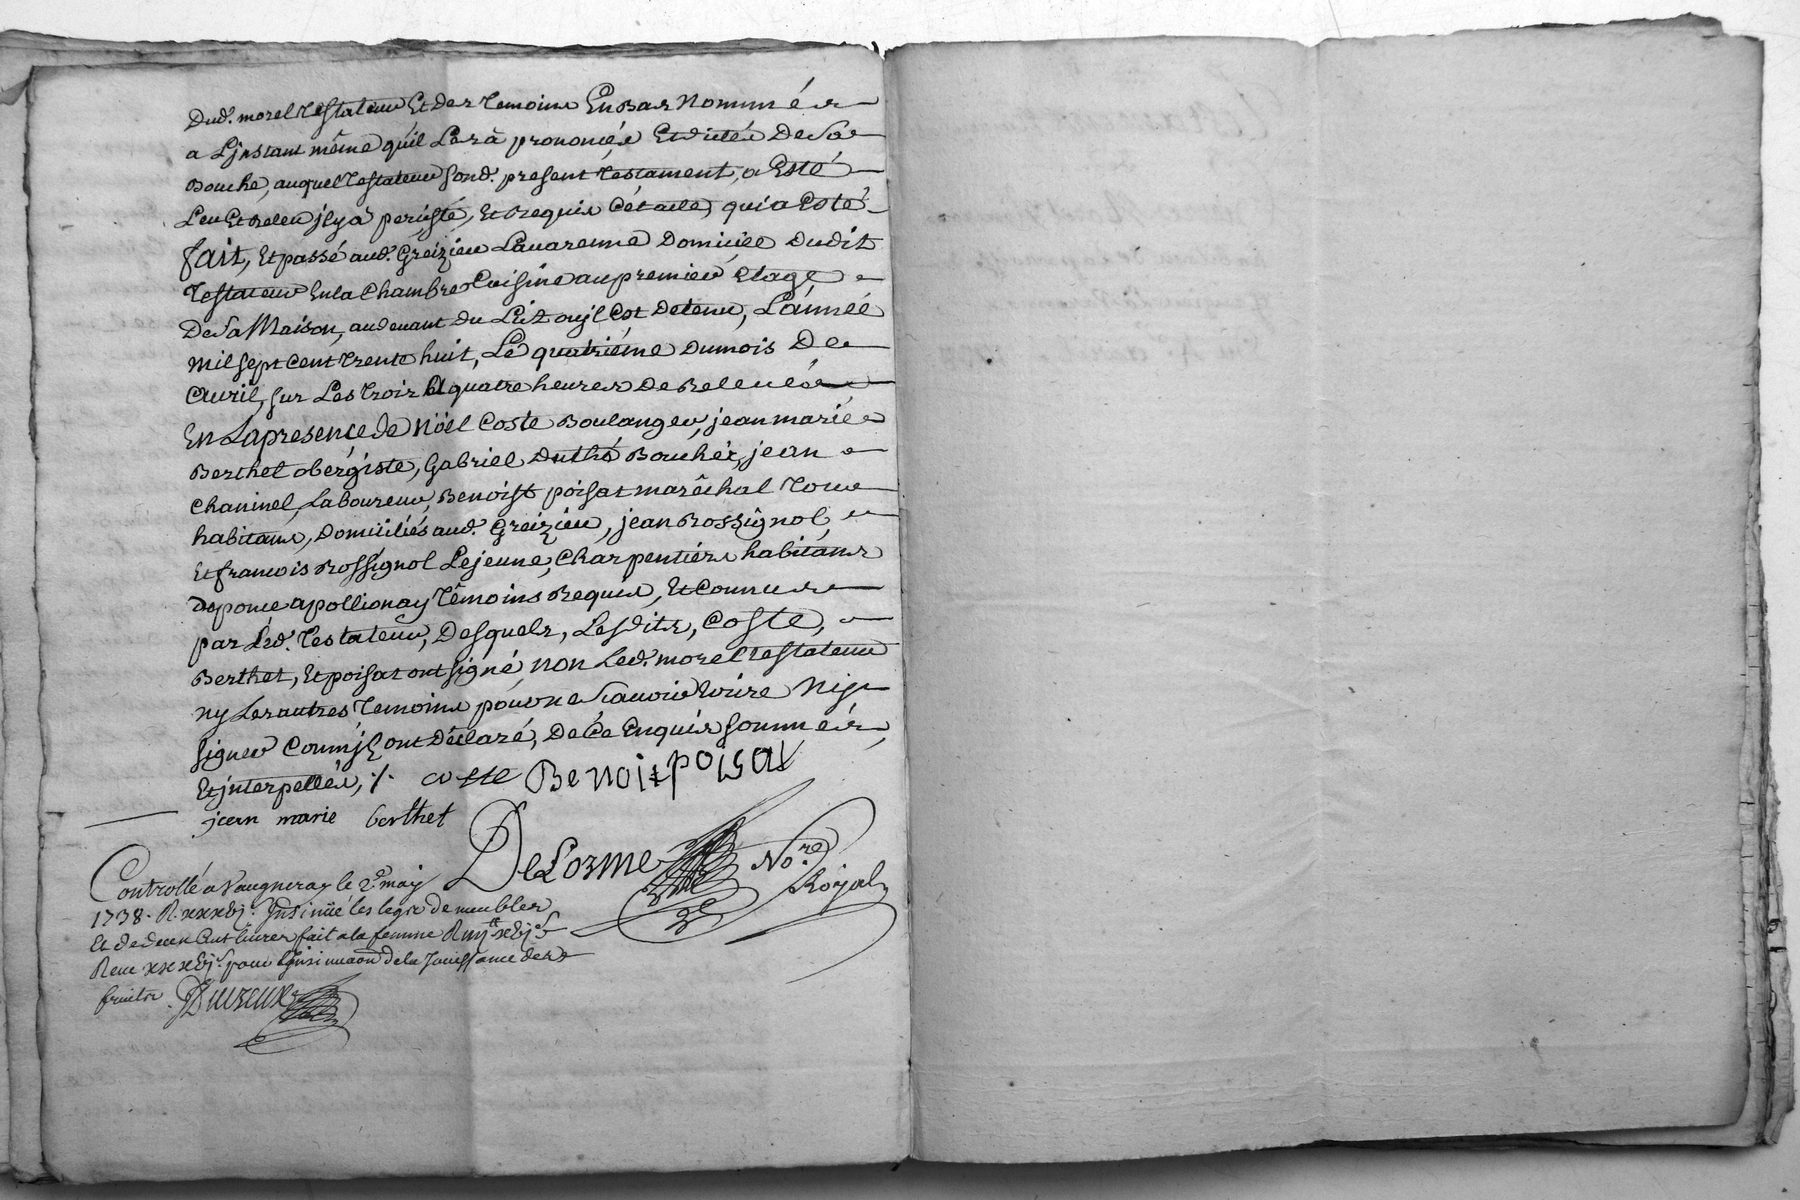 Dud. morel Testateur Et des Temoins En Bas Nommés
a L'jnstant même qu'il Les à prononcés Et dictés De Sa
Bouche, auquel Testateur sond. present Testament, a Esté
Leu Et Releu jl y a persisté, Et Requis Cét acte, qui a Esté
fait, Et passé aud. Greizieu Lauarenne Domicile Dudit
Testateur En la Chambre Cuisine au premier Etage
De Sa Maison, au deuant du Lit ou jl Est Detenu, L'année
Mil sept Cent Trente huit, Le quatriéme Du mois De
Auril, sur Les Trois Et quatre heures De Releuée
En La presence de Nöel Coste Boulanger, jean marie
Berthet obergiste, Gabriel Duthó Boucher, jean
Chaninel Laboureur, Benoist poisat maréchal Tous
habitans, Domiciliés aud. Greizieu, jean Rossignol,
Et francois Rossignol Lejeune, Charpentiers habitans
De apollionay Témoins Requis, Et Connus
par Led. Testateur, Desquels, Lesdits, Coste,
Berthet, Et poisat ont signé, non Led. morel Testateur
ny Les autres Temoins pour ne Scauoir Ecrire Ny
signer Comm' jls ont Déclaré, De Ce Enquis sommés,
Et jnterpellés, ·/· coste Benoit poisat
jean marie berthet
DeLorme No.re
Royal
Controllé a Vaugneray le 2.e may
1738. R. xxxvj s. Insinüé les legs de meubles
Et de deux Cent liures fait a la femme
Receu xxxvj s. pour l'Insinuaõn de la Jouissance des
fruits.